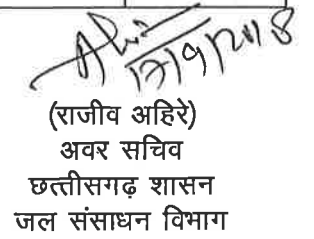 17/9/2018
(राजीव अहिरे)
अवर सचिव
छत्तीसगढ़ शासन
जल संसाधन विभाग